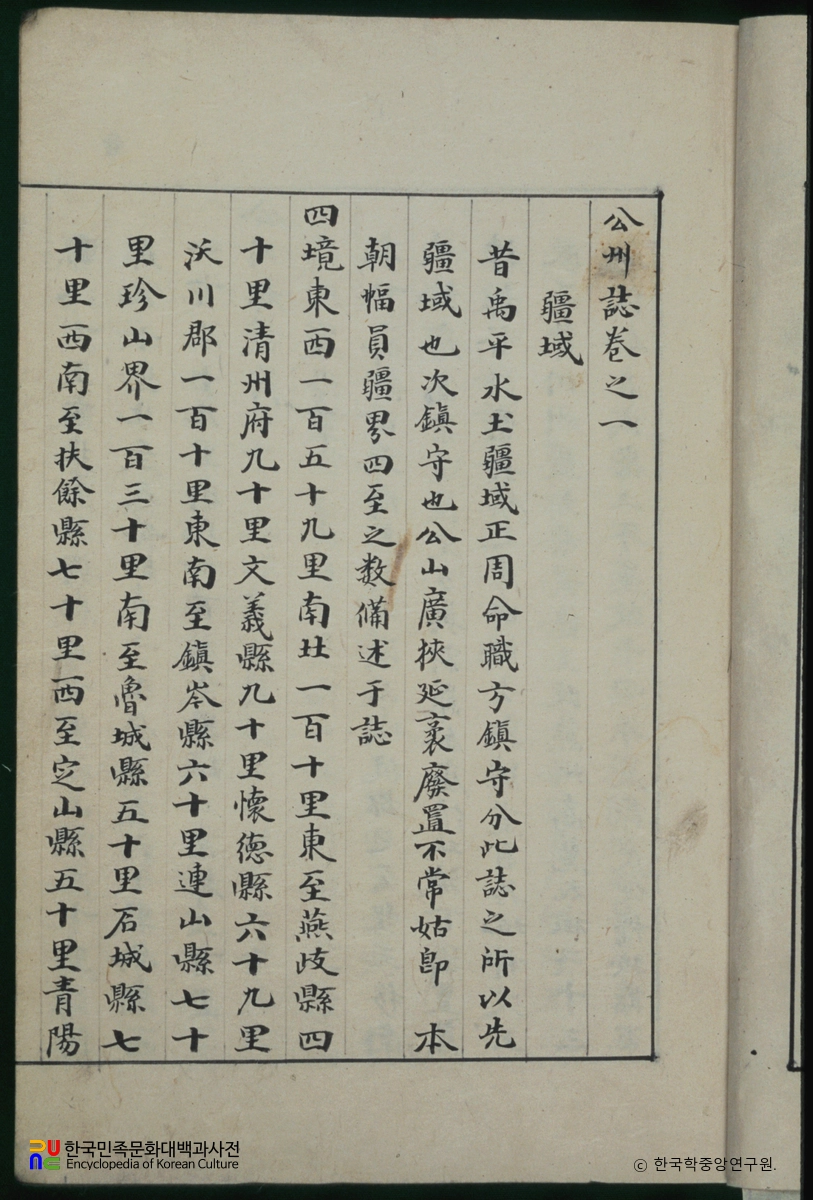 公州誌卷之一
疆域
昔禹平水土疆域正周命職方鎮守分此誌之所以先
疆域也次鎮守也公山廣挾延袤廢置不常姑卽 本
朝幅員疆界四至之数備述于誌
四境東西一百五十九里南北一百十里東至燕歧縣四
十里清州府九十里文義縣九十里懷德縣六十九里
沃川郡一百十里東南至鎮岑縣六十里連山縣七十
里珍山界一百三十里南至魯城縣五十里石城縣七
十里西南至扶餘縣七十里西至定山縣五十里青陽
한국민족문화대백과사전
Encyclopedia of Korean Culture
ⓒ 한국학중앙연구원.